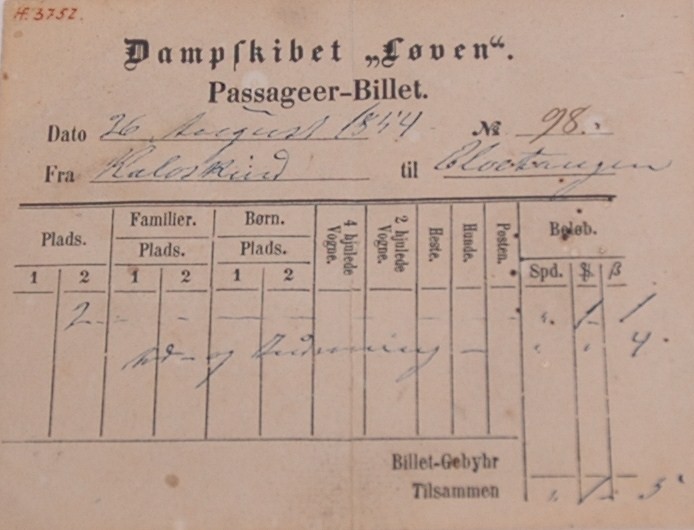 H. 3752.
Dampskibet „Løven“.
Passageer-Billet.
Dato 26 August 1854 № 98.
Fra til
Plads. Familier. Børn. 4 hjulede Vogne. 2 hjulede Vogne. Heste. Hunde. Posten. Beløb.
Plads. Plads.
1 2 1 2 1 2 Spd. ß
2 - - - - - - - - - „ 1 1
og - „ „ 4
Billet-Gebyhr
Tilsammen „ 1 5